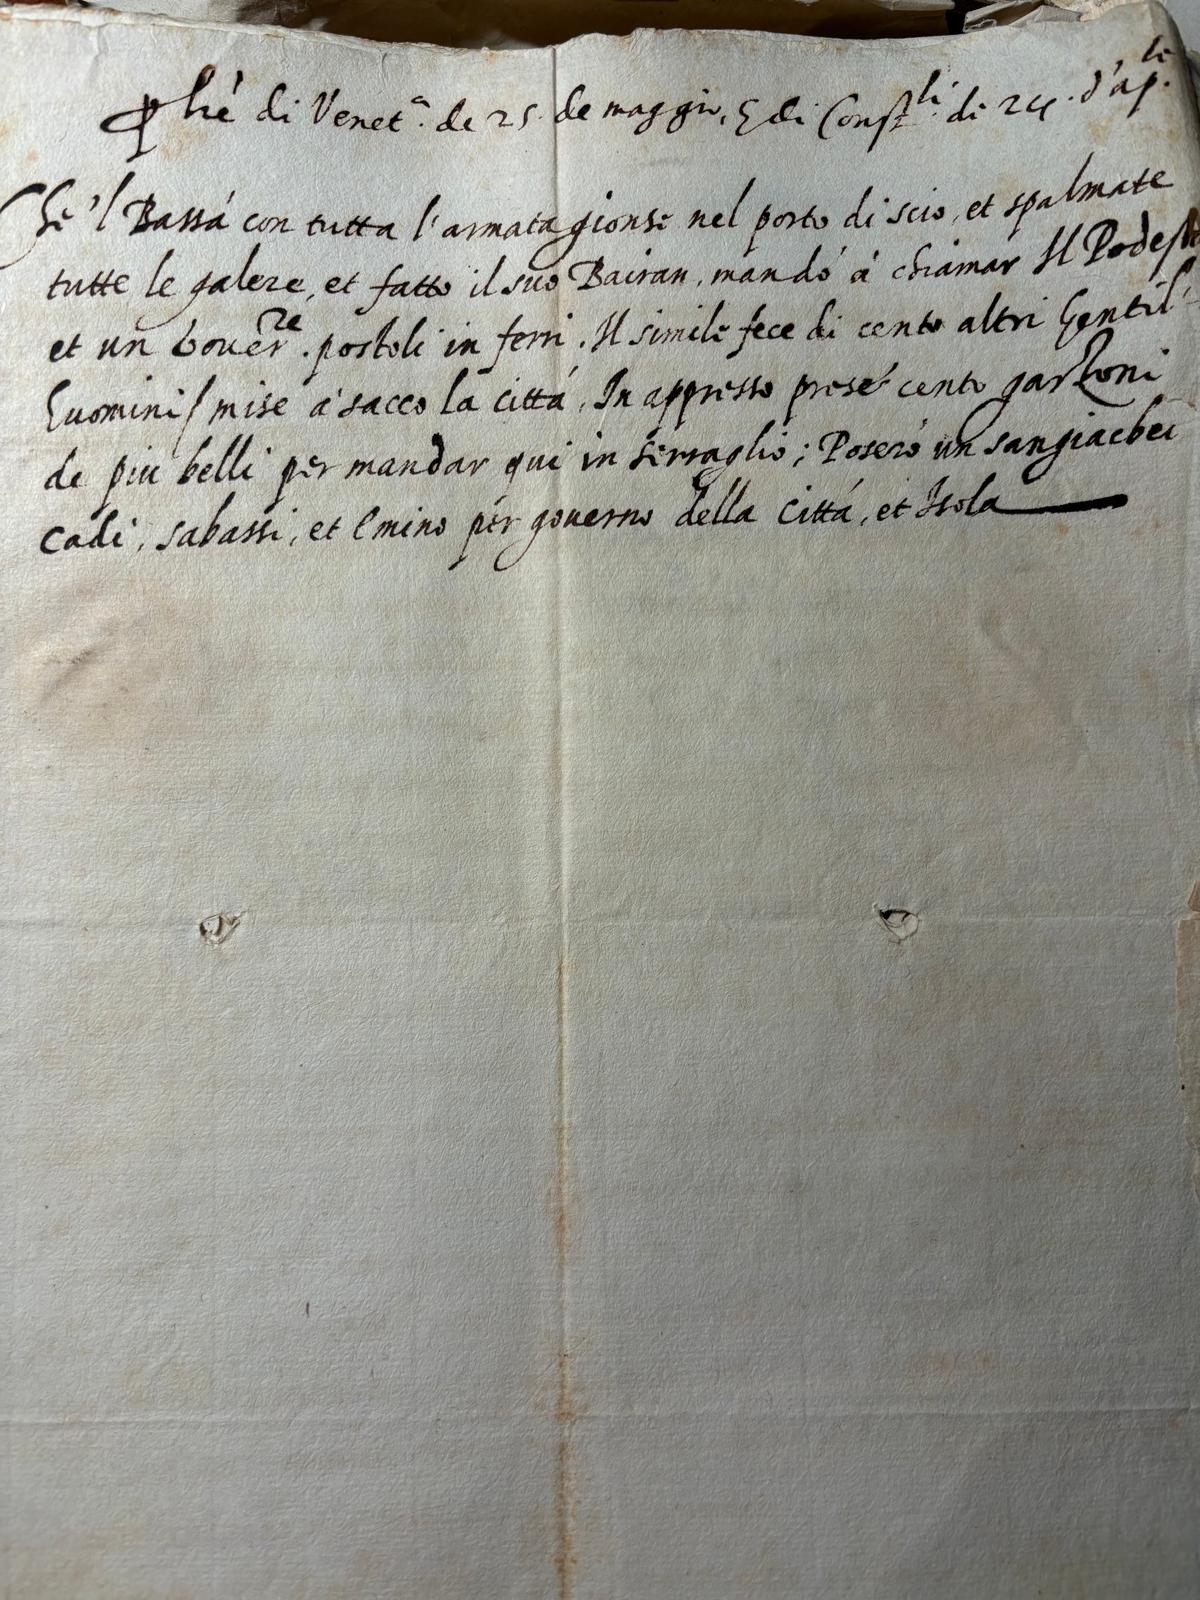 P lrẽ di Venetª. de 25. de maggio, & di Constli. di 24. d'aple.
Che 'l Bassá con tutta l'armata gionse nel porto di scio, et spalmate
tutte le galere, et fatto il suo Bairan, mandó á chiamar Il Podestà
et un Gouerre. postoli in ferri. Il simile fece di cento altri Gentil'
huomini / mise á sacco la cittá. In appresso prese cento garzoni
de piu belli per mandar qui in serraglio; Posero un sangiacbei
cadi, sabassi, et Emino per governo della cittá, et Isola